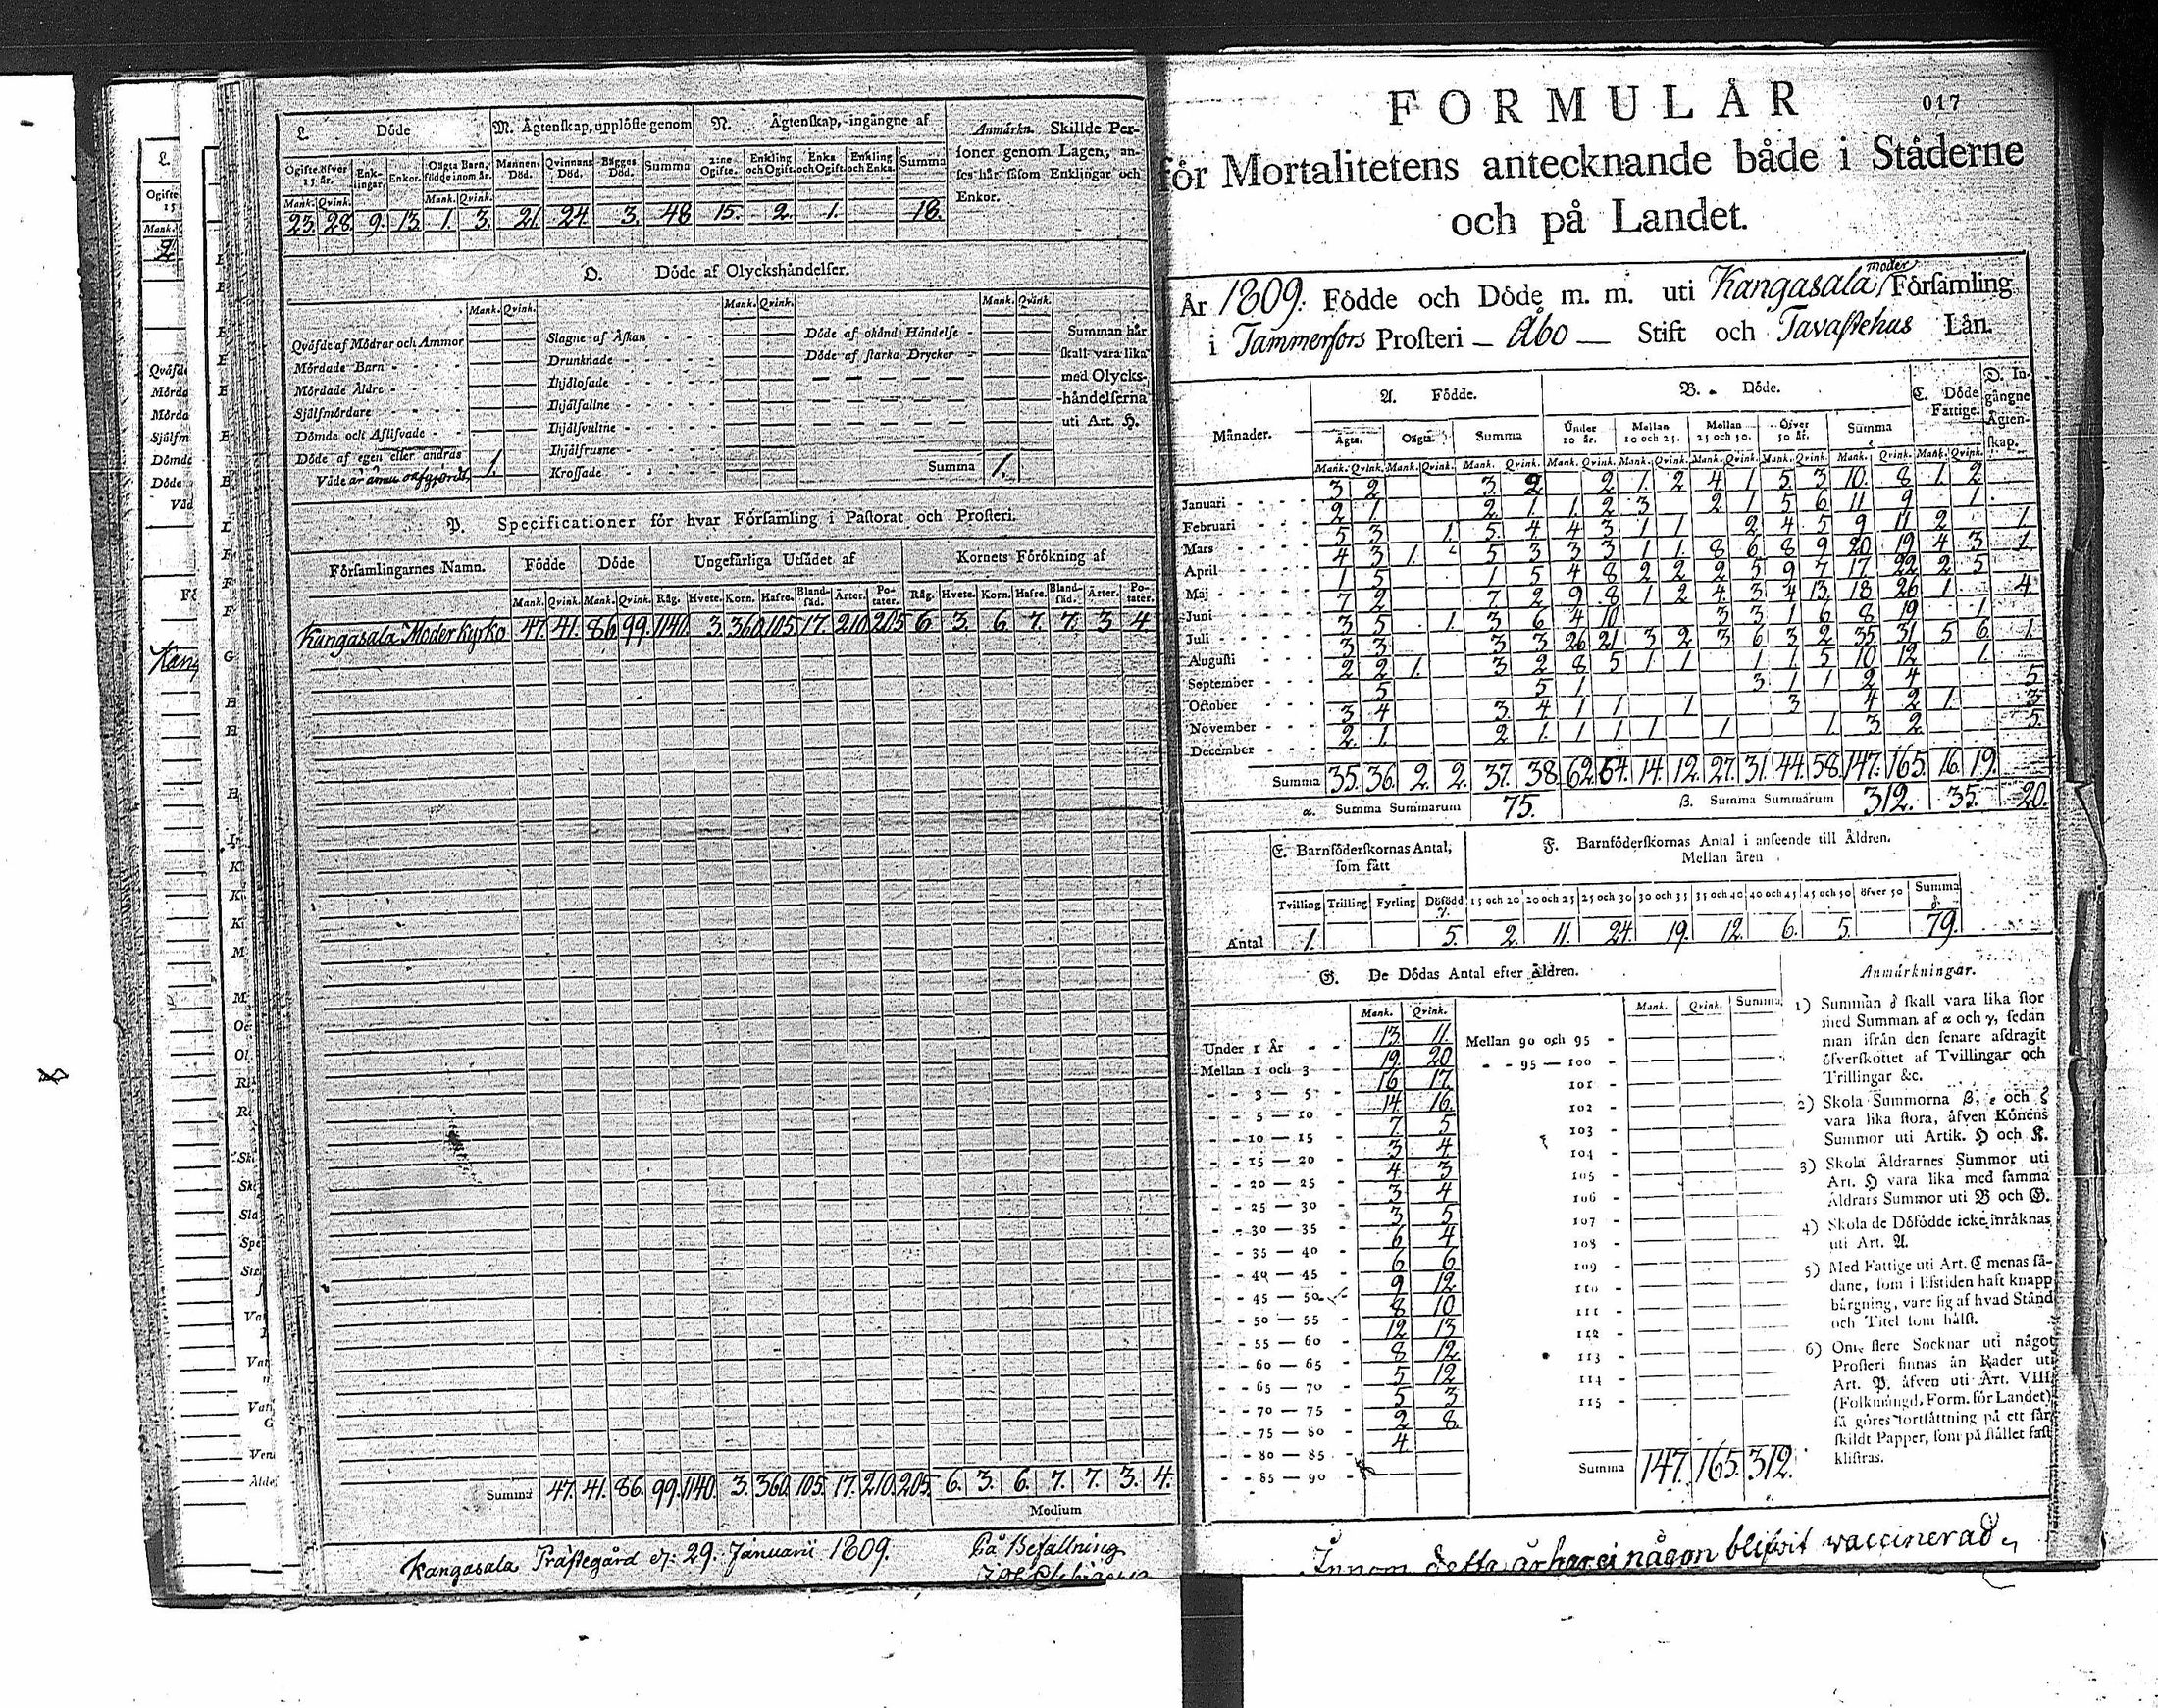 L. Döde
M. Ägtenskap, upplöste genom
N. Ägtenskap, ingångne af
Anmärkn. Skillde Per-
soner genom Lagen, an-
ses här såsom Enklingar och
Enkor.
Ogifte öfver 15 år. Enk-lingar. Enkor. Oägta Barn, födde inom år. Mannens Död. Qvinnans Död. Bägges Död. Summa 2:ne Ogifte. Enkling och Ogift. Enka och Ogift. Enkling och Enka. Summa
Mank. Qvink. Mank. Qvink.
23. 28. 9. 13. 1. 3. 21. 24. 3. 48 15. 2. 1. 18.
O. Döde af Olyckshändelser.
Mank. Qvink. Mank. Qvink. Mank. Qvink.
Qväfde af Mödrar och Ammor
Mördade Barn
Mördade Äldre
Sjelfmördare
Dömde och Aflifvade
Döde af egen eller andras
Våde är ännu oafgjordt. 1.
Slagne af Åskan
Drunknade
Ihjälfallne
Ihjälfrusne
Krossade
Döde af okänd Händelse
Döde af starka Drycker
Summa 1.
Summan här
skall vara lika
med Olycks-
händelserna
uti Art. H.
P. Specificationer för hvar Församling i Pastorat och Prosteri.
Församlingarnes Namn. Födde Döde Ungefärliga Utsädet af Kornets Förökning af
Mank. Qvink. Mank. Qvink. Råg. Hvete. Korn. Hafre. Bland-säd. Ärter. Po-tater. Råg. Hvete. Korn. Hafre. Bland-säd. Ärter. Po-tater.
Kangasala Moderkyrko 47. 41. 86 99. 1140. 3. 360. 105. 17. 210. 205 6. 3. 6. 7. 7. 3 4.
Summa 47. 41. 86. 99. 1140. 3. 360. 105. 17. 210. 205. 6. 3. 6. 7. 7. 3. 4.
Medium
Kangasala Prästegård d. 29. Januarii 1809. På Befallning
017
FORMULÄR
för Mortalitetens antecknande både i Städerne
och på Landet.
År 1809. Födde och Döde m. m. uti Kangasala moder Församling
i Tammerfors Prosteri — Åbo — Stift och Tavastehus Län.
Månader. A. Födde. B. Döde. C. Döde Fattige. D. Ingångne Ägtenskap.
Ägta. Oägta. Summa Under 10 år. Mellan 10 och 25. Mellan 25 och 50. Öfver 50 år. Summa
Mank. Qvink. Mank. Qvink. Mank. Qvink. Mank. Qvink. Mank. Qvink. Mank. Qvink. Mank. Qvink. Mank. Qvink. Mank. Qvink.
Januari 3 2 3. 2 2 1. 2 4 1 5 3 10. 8 1. 2
Februari 2 1. 2. 1. 1. 2 3 2 1 5 6 11 9 1.
Mars 5 3 1. 5. 4 4 3 1 1 2 4 5 9 11 2 1.
April 4 3 1. 5 3 3 3 1 1. 8 6 8 9 20 19 4 3 1.
Maj 1 5 1 5 4 8 2 2 2 5 9 7 17 22 2 5
Juni 7 2 7 2 9 8 1 2 4 3 4 13 18 26 1 4
Juli 3 5 1. 3 6 4 10 3 3 1 6 8 19 1
Augusti 3 3 3 3 26 21 3 2 3 6 3 2 35 31 5 6 1.
September 2 2 1. 3 2 8 5 1 1 1 1 5 10 12 1.
October 5 5 1 3 1 1 2 4 5
November 3 4 3. 4 1 1 1 3 4 2 1. 3
December 2. 1. 2 1. 1 1 1 1 1 1. 3 2 5
Summa 35. 36. 2. 2. 37. 38. 62. 64. 14. 12. 27. 31. 44. 58. 147. 165. 16. 19.
α. Summa Summarum 75. β. Summa Summarum 312. 35. 20.
E. Barnföderskornas Antal, som fått
F. Barnföderskornas Antal i anseende till Åldren.
Mellan åren
Tvilling Trilling Fyrling Döfödd γ. 15 och 20 20 och 25 25 och 30 30 och 35 35 och 40 40 och 45 45 och 50 öfver 50 Summa δ
Antal 1. 5. 2. 11. 24. 19. 12. 6. 5. 79.
G. De Dödas Antal efter Åldren.
Mank. Qvink. Mank. Qvink. Summa
Under 1 År 13. 11. Mellan 90 och 95
Mellan 1 och 3 19. 20 95 — 100
3 — 5 16 17. 101
5 — 10 14. 16. 102
10 — 15 7. 5 103
15 — 20 3 4 104
20 — 25 4. 3 105
25 — 30 3 4 106
30 — 35 3 5 107
35 — 40 6 4 108
40 — 45 6 6 109
45 — 50 9 12 110
50 — 55 8 10 111
55 — 60 12 13 112
60 — 65 8 12 113
65 — 70 5 12 114
70 — 75 5 3 115
75 — 80 2 8.
80 — 85 4
85 — 90
Summa 147. 165. 312.
Anmärkningar.
1) Summan δ skall vara lika stor
med Summan af α och γ, sedan
man ifrån den senare afdragit
öfverskottet af Tvillingar och
Trillingar &c.
2) Skola Summorna β, ε och ζ
vara lika stora, äfven Könens
Summor uti Artik. H och K.
3) Skola Åldrarnes Summor uti
Art. H vara lika med samma
Åldrars Summor uti B och G.
4) Skola de Döfödde icke inräknas
uti Art. A.
5) Med Fattige uti Art. C menas så-
dane, som i lifstiden haft knapp
bärgning, vare sig af hvad Stånd
och Titel som hälst.
6) Om flere Socknar uti något
Prosteri finnas än Rader uti
Art. P. äfven uti Art. VIII
(Folkmängd. Form. för Landet)
så göres fortsättning på ett sär-
skildt Papper, som på stället fast
klistras.
Innom detta år har ei någon blifvit vaccinerad